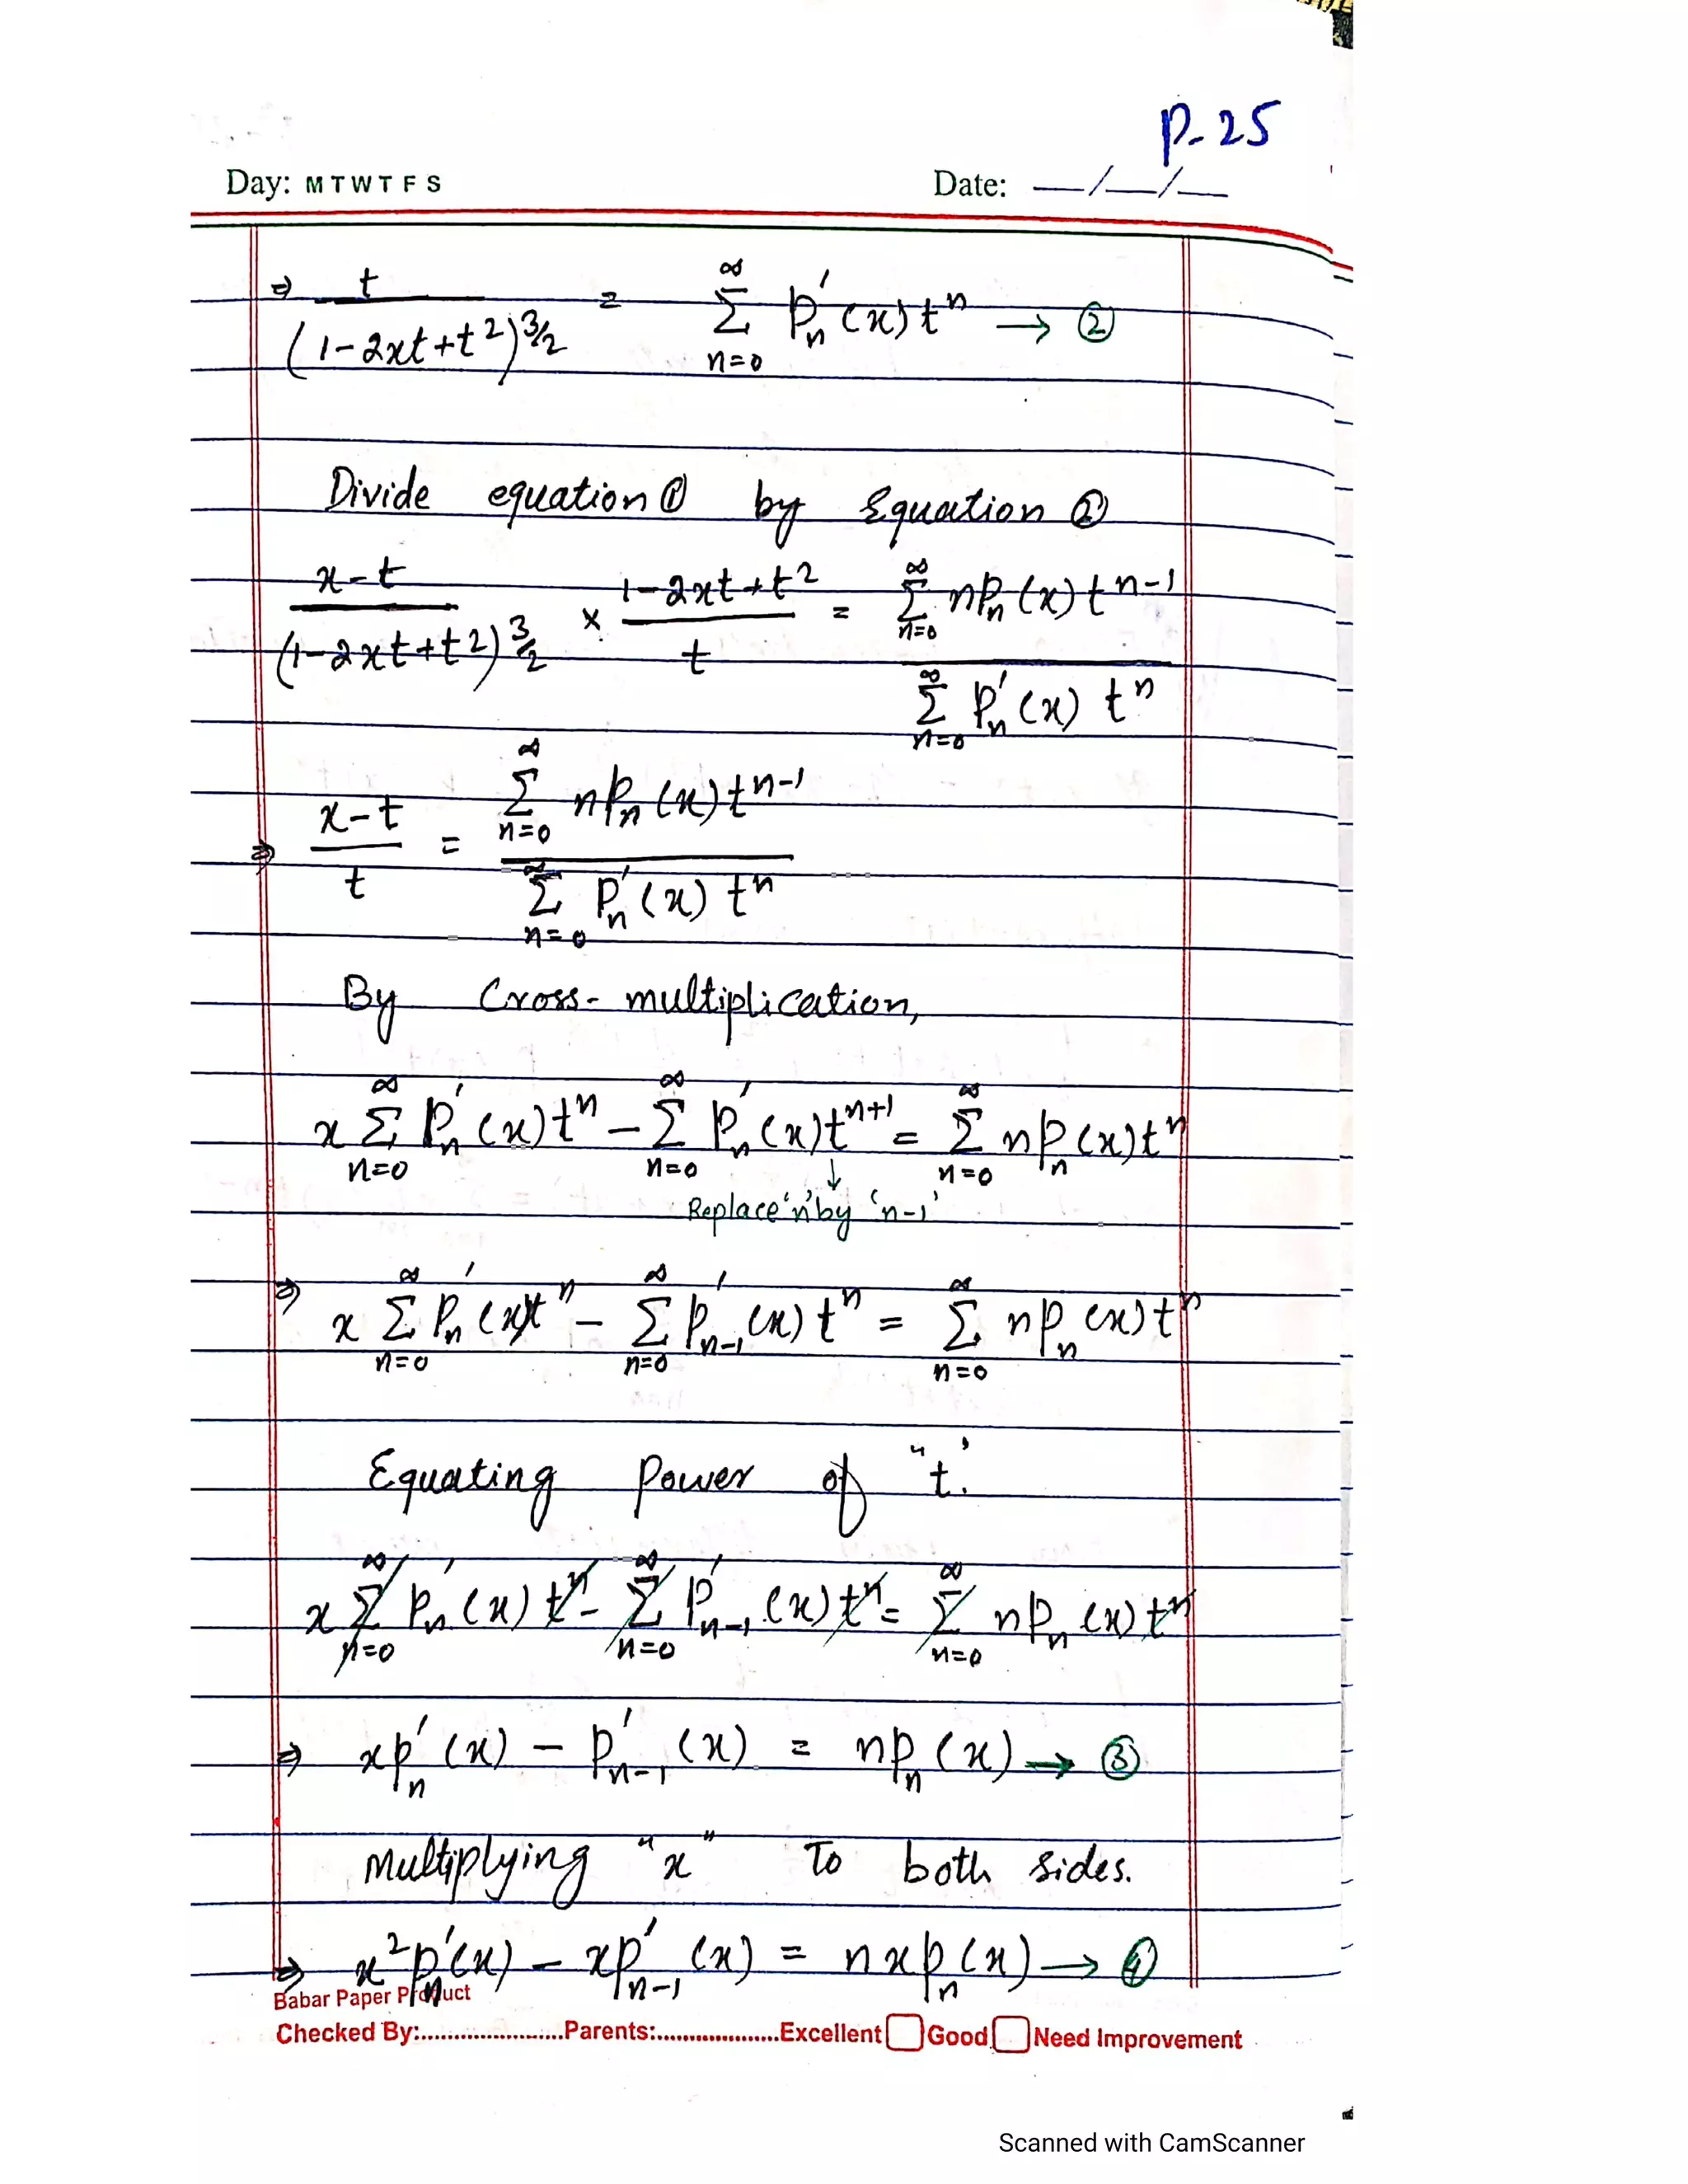 P-25
Day: M T W T F S Date: __/__/__
⇒ t/(1-2xt+t²)^3/2 = ∞Σn=0 Pn'(x) tⁿ → ②
Divide equation ① by Equation ②
x-t/(1-2xt+t²)^3/2 × 1-2xt+t²/t = ∞Σn=0 nPn(x) tⁿ⁻¹ / ∞Σn=0 Pn'(x) tⁿ
⇒ x-t/t = ∞Σn=0 nPn(x) tⁿ⁻¹ / ∞Σn=0 Pn'(x) tⁿ
By Cross-multiplication,
x ∞Σn=0 Pn'(x)tⁿ - ∞Σn=0 Pn'(x)tⁿ⁺¹ = ∞Σn=0 nPn(x)tⁿ
↓
Replace 'n' by 'n-1'
⇒ x ∞Σn=0 Pn'(x)tⁿ - ∞Σn=0 P'n-1(x) tⁿ = ∞Σn=0 nPn(x)tⁿ
Equating Power of "t.'
x ∞Σn=0 Pn'(x) tⁿ - ∞Σn=0 P'n-1(x) tⁿ = ∞Σn=0 nPn(x) tⁿ
⇒ xPn'(x) - P'n-1(x) = nPn(x) → ③
multiplying "x" To both sides.
⇒ x²Pn'(x) - xP'n-1(x) = nxPn(x) → ④
Babar Paper Product
Checked By:......................Parents:...................Excellent Good Need Improvement
Scanned with CamScanner